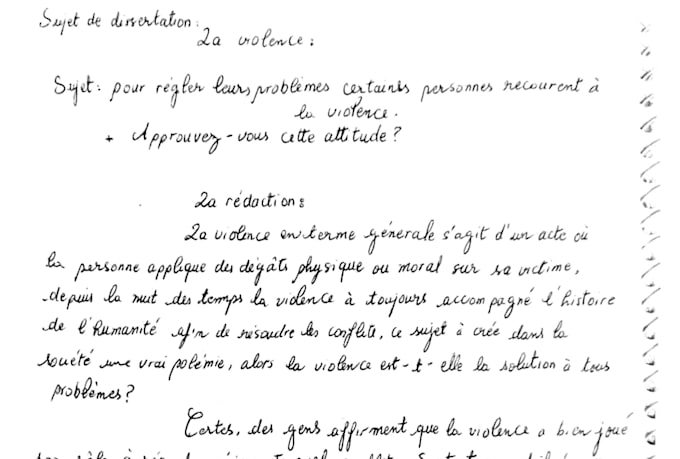 Sujet de dissertation:
La violence:
Sujet: pour régler leurs problèmes certaines personnes recourent à
la violence.
+ Approuvez-vous cette attitude?
La rédaction:
La violence en terme génerale s'agit d'un acte où
la personne applique des dégâts physique ou moral sur sa victime,
depuis la nuit des temps la violence à toujours accompagné l'histoire
de l'humanité afin de résoudre les conflits, ce sujet à crée dans la
société une vrai polémie, alors la violence est-t-elle la solution à tous
problèmes?
Certes, des gens affirment que la violence a bien joué